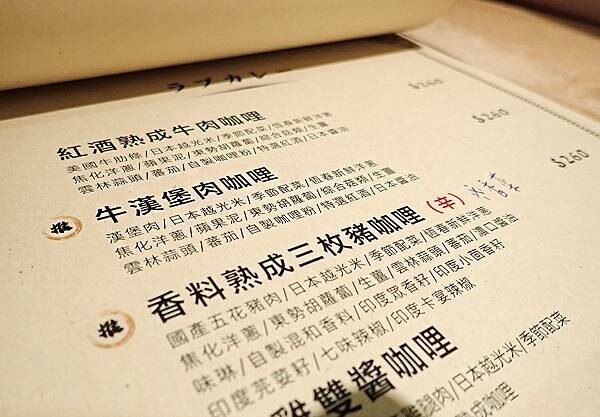 ラブカレー
紅酒熟成牛肉咖哩 $260
美國牛肋條/日本越光米/季節配菜/恆春新鮮洋蔥
焦化洋蔥/蘋果泥/東勢胡蘿蔔/綜合菇類/生薑
雲林蒜頭/蕃茄/自製咖哩粉/特選紅酒/日本醬油
牛漢堡肉咖哩 $260
漢堡肉/日本越光米/季節配菜/恆春新鮮洋蔥
焦化洋蔥/蘋果泥/東勢胡蘿蔔/綜合菇類/生薑
雲林蒜頭/蕃茄/自製咖哩粉/特選紅酒/日本醬油
推
香料熟成三枚豬咖哩(辛) $260
國產五花豬肉/日本越光米/季節配菜/恆春新鮮洋蔥
焦化洋蔥/東勢胡蘿蔔/生薑/雲林蒜頭/蕃茄/濃口醬油
味琳/自製混和香料/印度眾香籽/印度小茴香籽
印度芫荽籽/七味辣椒/印度卡宴辣椒
推
雙醬咖哩
腿肉/日本越光米/季節配菜